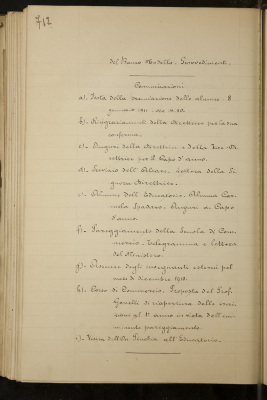 712
del Banco Modello. Provvedimenti.
Comunicazioni
a). Festa della premiazione delle alunne 8
gennaio 1911 - ore 10
b). Ringraziamenti della Direttrice per la sua
conferma.
c). Auguri della Direttrice e della Vice-Di-
rettrice pel Capo d'anno.
d). Servizio dell' Lettera della Si-
gnora Direttrice.
e). Alunne dell' Educatorio. Alunna Car-
mela Auguri di Capo
d'anno.
f). Pareggiamento della Scuola di Com-
mercio. Telegramma e lettera
del Ministero.
g). Assenze degli insegnanti esterni pel
mese di dicembre 1910.
h). Corso di Commercio. Proposta del Prof.
di riapertura delle iscri-
zioni al 1° anno in vista dell'im-
minente pareggiamento.
i). Visita dell'On. all' Educatorio.